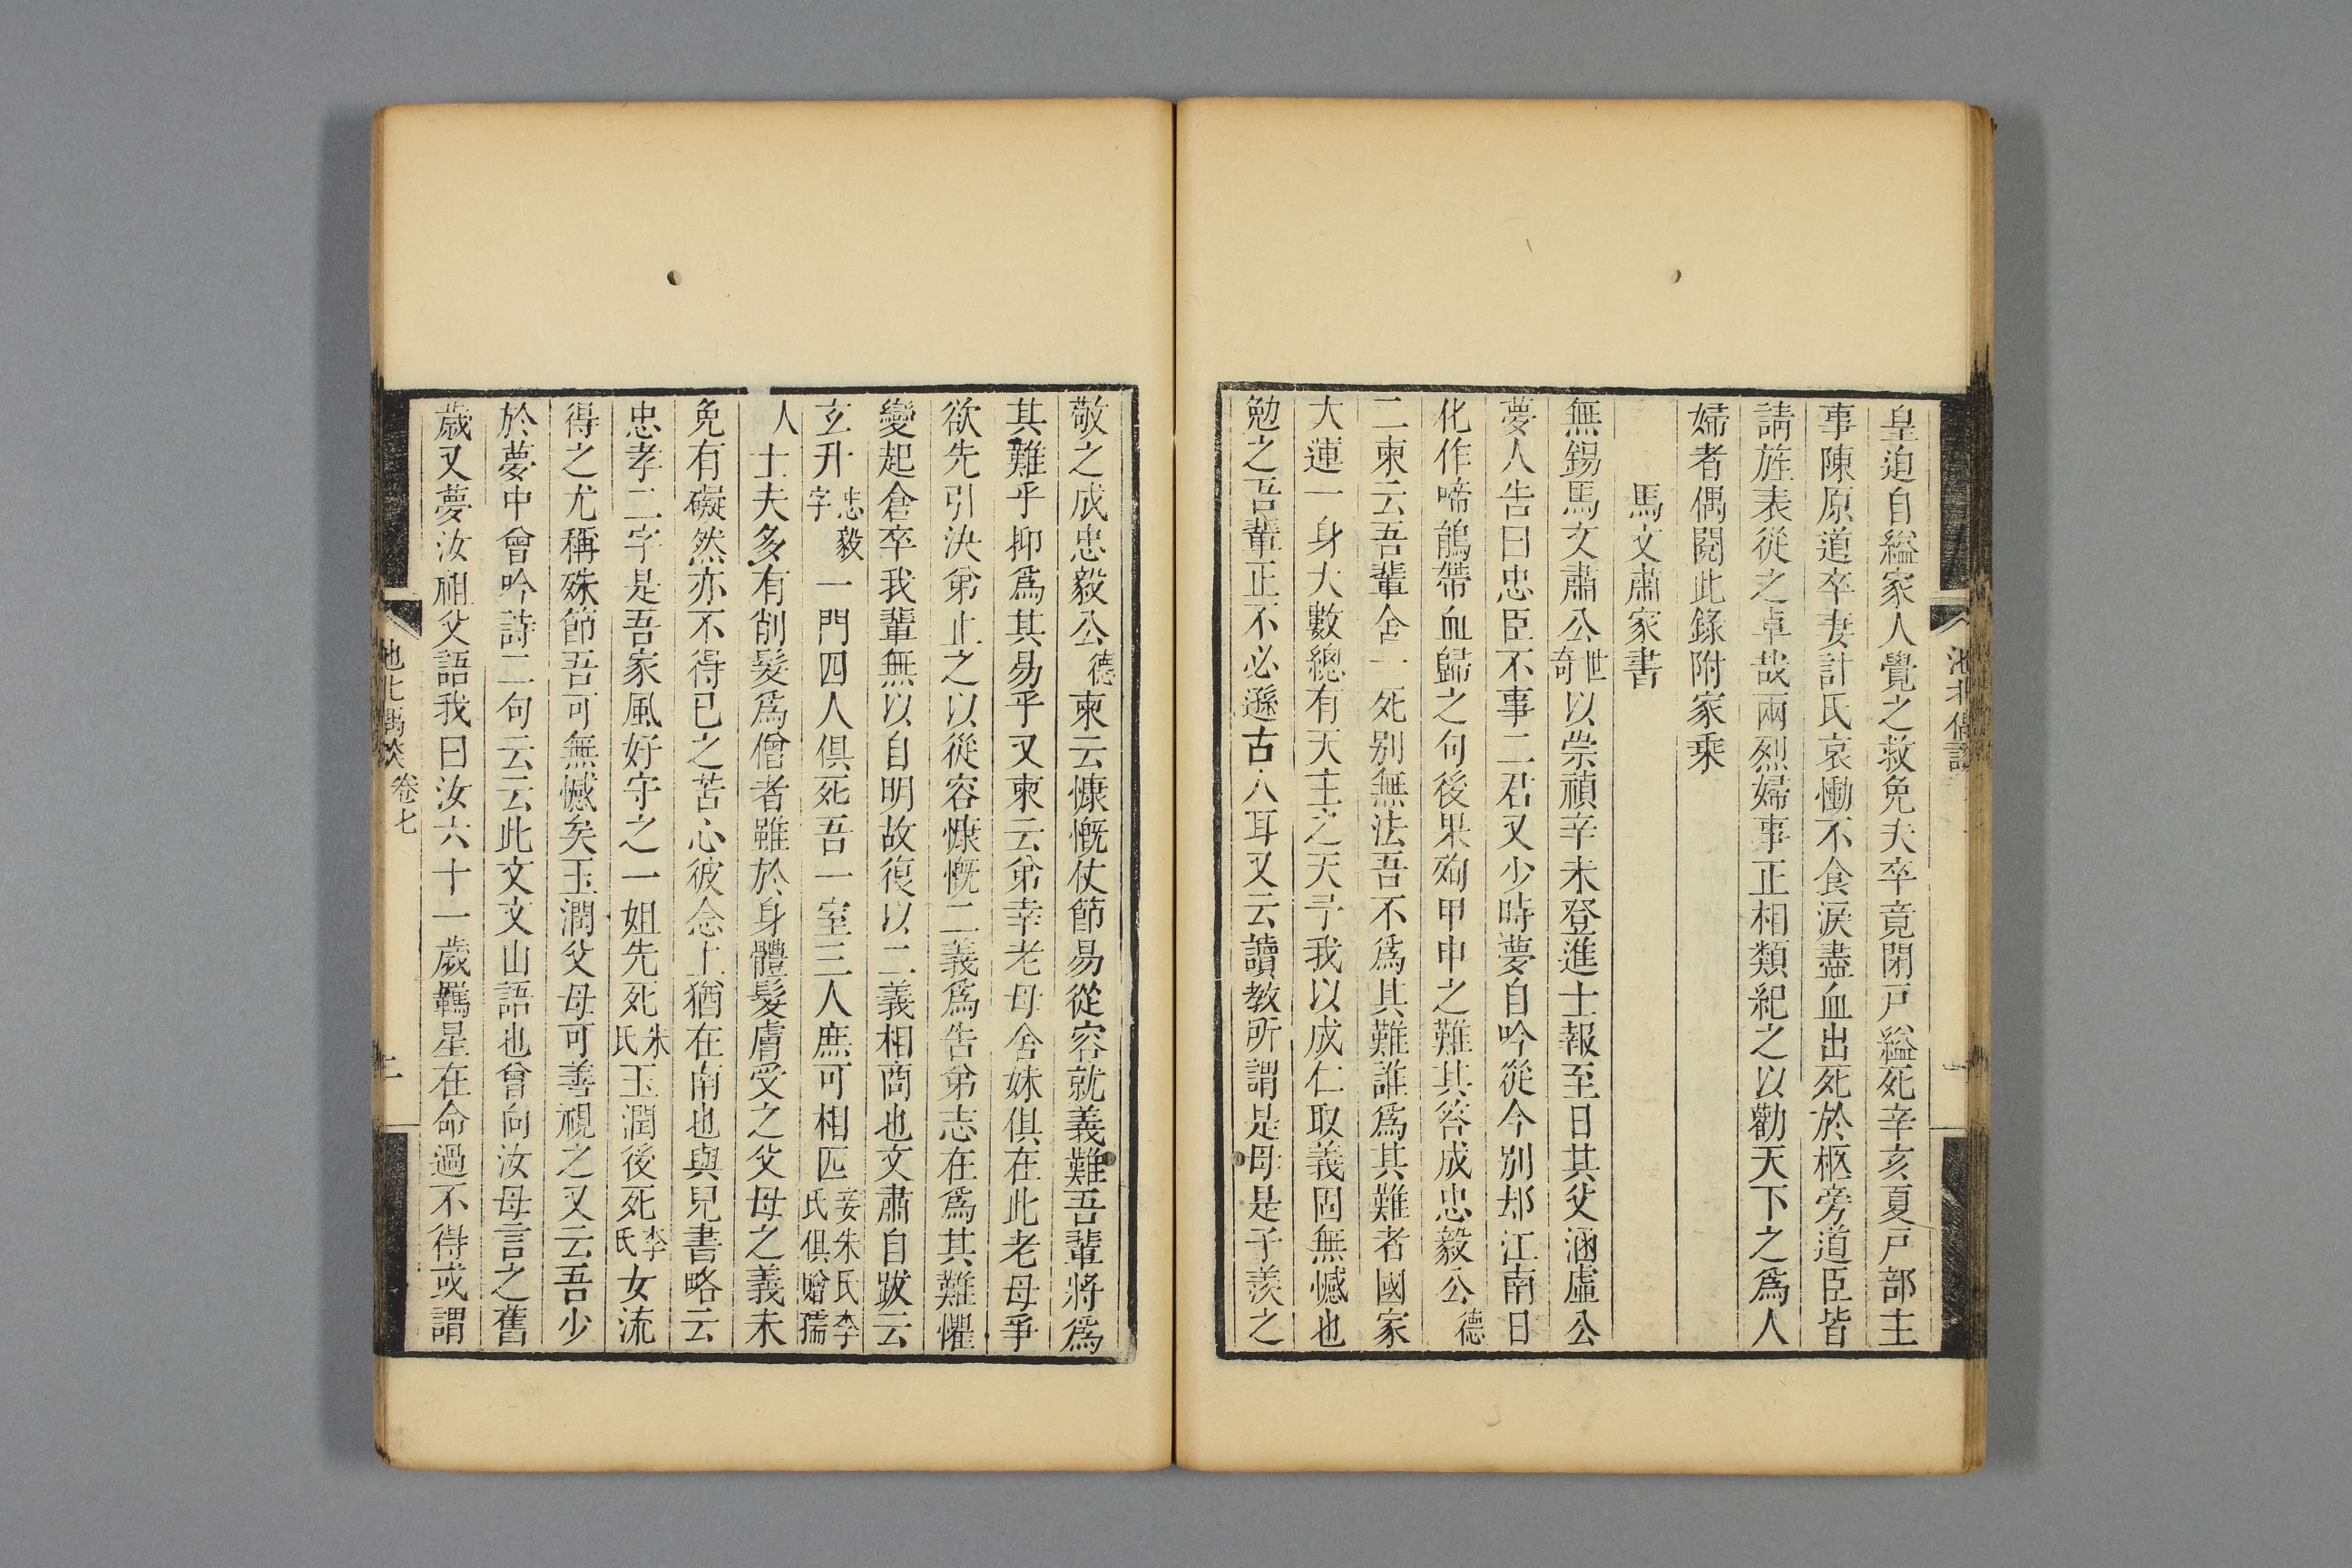 皇迫自縊家人覺之救免夫卒竟閉戸縊死辛亥夏戸部主
事陳原道卒妻計氏哀慟不食淚盡血出死於柩旁道臣皆
請旌表從之卓哉兩烈婦事正相類紀之以勸天下之爲人
婦者偶閱此錄附家乘
馬文肅家書
無錫馬文肅公世奇以崇禎辛未登進士報至日其父涵虛公
夢人告曰忠臣不事二君又少時夢自吟從今別却江南日
化作啼鵑帶血歸之句後果殉甲申之難其答成忠毅公德
二柬云吾輩舍一死別無法吾不爲其難誰爲其難者國家
大運一身大數總有天主之天子我以成仁取義固無憾也
勉之吾輩正不必遜古人耳又云讀敎所謂是母是子羨之
敬之成忠毅公德柬云慷慨仗節易從容就義難吾輩將爲
其難乎抑爲其易乎又柬云弟幸老母舍妹俱在此老母爭
欲先引決弟止之以從容慷慨二義爲告弟志在爲其難懼
變起倉卒我輩無以自明故復以二義相商也文肅自跋云
玄升忠毅字一門四人俱死吾一室三人庶可相匹妾朱氏李氏俱贈孺人
士夫多有削髮爲僧者雖於身體髮膚受之父母之義未
免有礙然亦不得已之苦心彼念上猶在南也與兒書略云
忠孝二字是吾家風好守之一姐先死朱氏玉潤後死李氏女流
得之尤稱殊節吾可無憾矣玉潤父母可善視之又云吾少
於夢中曾吟詩二句云云此文文山語也曾向汝母言之舊
歲又夢汝祖父語我曰汝六十一歲羈星在命過不得或謂
池北偶談 卷七 二